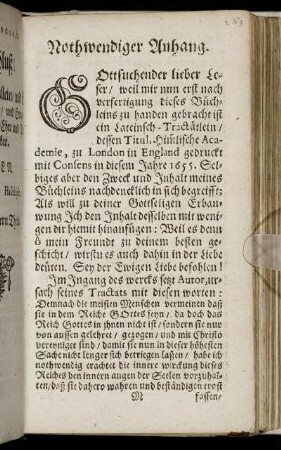 263
Nothwendiger Anhang.
GOttsuchender lieber Le-
ser / weil mir nun erst nach
verfertigung dieses Büch-
leins zu handen gebracht ist
ein Lateinsch-Tractätlein /
dessen Titul, Himlische Aca-
demie, zu London in England gedruckt
mit Consens in diesem Jahre 1655. Sel-
biges aber den Zweck und Inhalt meines
Büchleins nachdencklich in sich begreifft;
Als will zu deiner Gottseligen Erbau-
wung Jch den Inhalt desselben mit weni-
gen dir hiemit hinanfügen: Weil es denn
ô mein Freundt zu deinem besten ge-
schicht / wirstu es auch dahin in der Liebe
deüten. Sey der Ewigen Liebe befohlen!
Jm Jngang des wercks setzt Autor, ur-
sach seines Tractats mit diesen worten:
Demnach die meisten Menschen vermeinen daß
sie in dem Reiche GOttes seyn / da doch das
Reich Gottes in jhnen nicht ist / sondern sie nur
von aussen gelehret / gezogen / und mit Christo
vereyniget sind / damit sie nun in dieser höhesten
Sache nicht lenger sich betriegen laßen / habe ich
nothwendig erachtet die innere wirckung dieses
Reiches den innern augen der Seelen vorzuhal-
ten / daß sie dahero wahren und beständigen trost
M fassen /